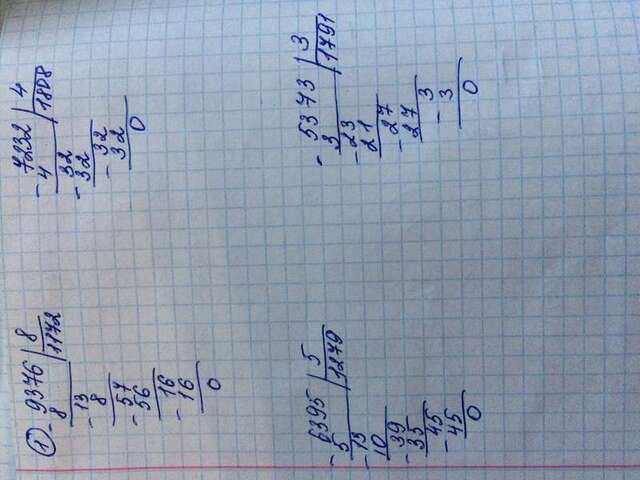 ① 9376 | 8
- 8 | 1172
13
- 8
57
- 56
16
- 16
0
7232 | 4
- 4 | 1808
32
- 32
32
- 32
0
6395 | 5
- 5 | 1279
13
- 10
39
- 35
45
- 45
0
5373 | 3
- 3 | 1791
23
- 21
27
- 27
3
- 3
0